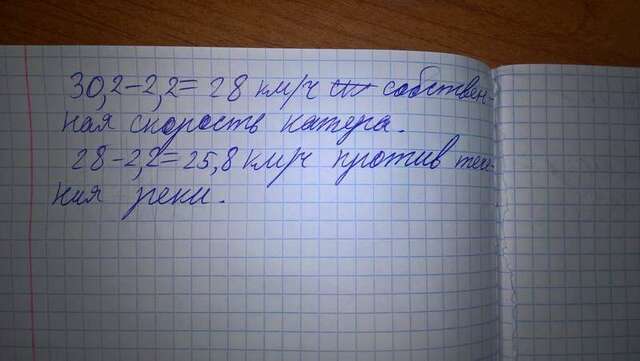 30,2-2,2=28 км/ч собствен-
ная скорость катера.
28-2,2=25,8 км/ч против тече-
ния реки.